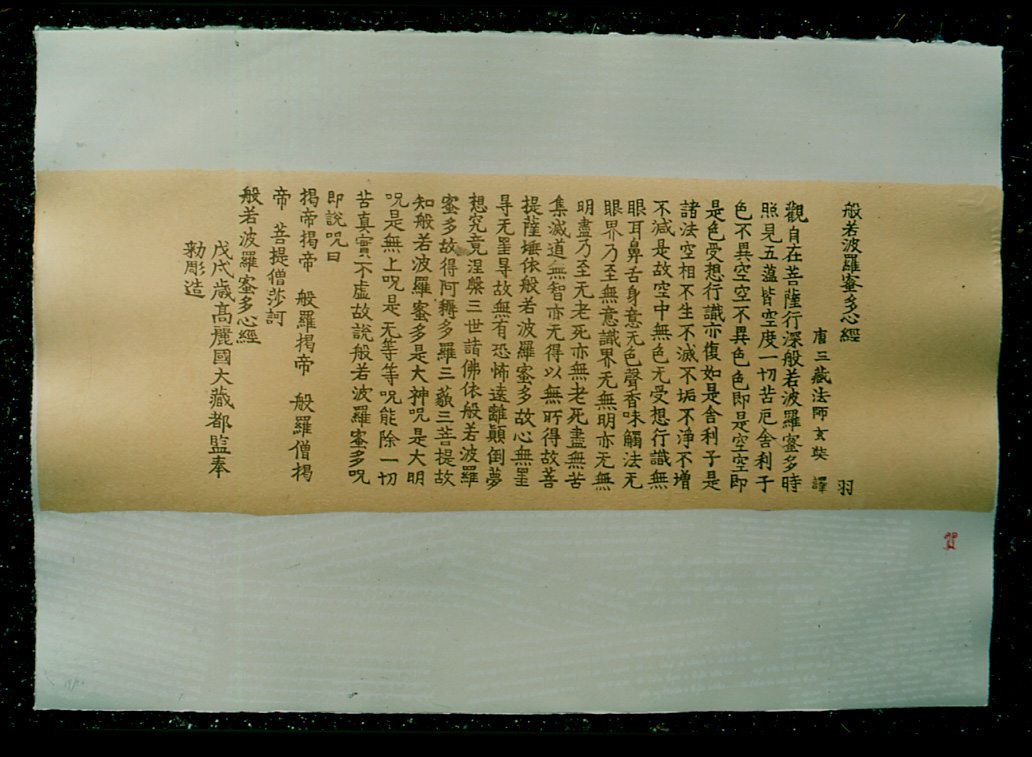 般若波羅蜜多心經 羽
唐三藏法師玄奘 譯
觀自在菩薩行深般若波羅蜜多時
照見五蘊皆空度一切苦厄舍利子
色不異空空不異色色即是空空即
是色受想行識亦復如是舍利子是
諸法空相不生不滅不垢不淨不增
不減是故空中無色无受想行識無
眼耳鼻舌身意无色聲香味觸法无
眼界乃至無意識界无無明亦无無
明盡乃至无老死亦無老死盡無苦
集滅道無智亦无得以無所得故菩
提薩埵依般若波羅蜜多故心無罣
㝵无罣㝵故無有恐怖遠離顛倒夢
想究竟涅槃三世諸佛依般若波羅
蜜多故得阿耨多羅三藐三菩提故
知般若波羅蜜多是大神呪是大明
呪是無上呪是无等等呪能除一切
苦真實不虛故說般若波羅蜜多呪
即說呪曰
揭帝揭帝 般羅揭帝 般羅僧揭
帝 菩提僧莎訶
般若波羅蜜多心經
戊戌歲高麗國大藏都監奉
勅彫造